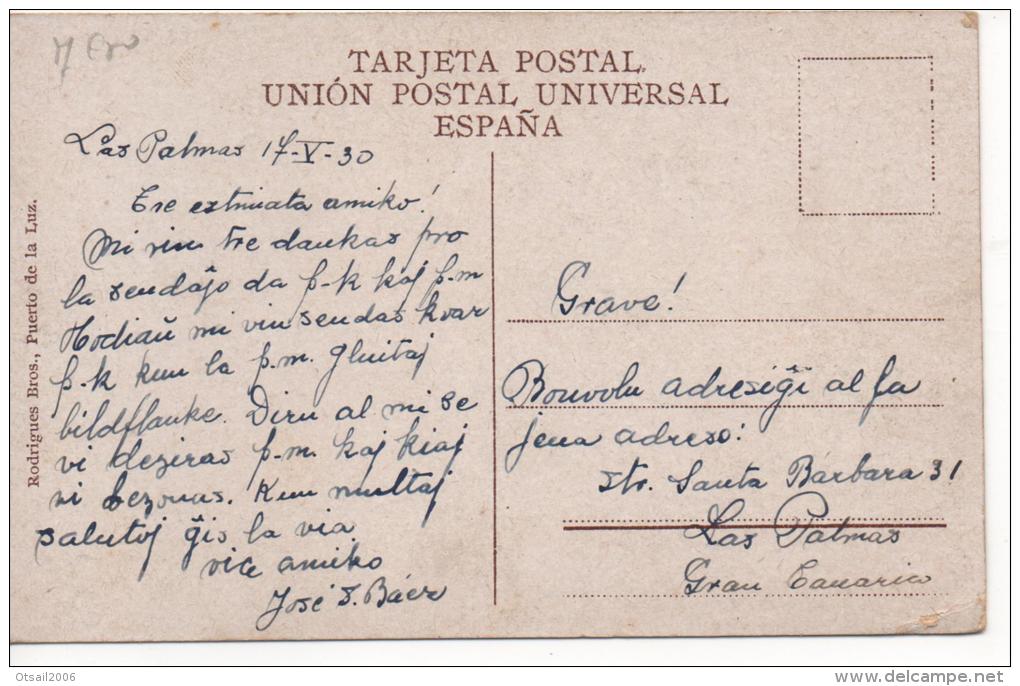 TARJETA POSTAL
UNIÓN POSTAL UNIVERSAL
ESPAÑA
Las Palmas 17-V-30
Tre estimata amiko!
Mi vin tre dankas pro
la sendaĵo da p-k kaj p.m
Hodiaŭ mi vin sendas kvar
p-k kun la p.m. gluitaj
bildflanke. Diru al mi se
vi deziras p.m. kaj kiaj
vi bezonas. Kun multaj
salutoj ĝis la via
vice amiko
José S. Báez
Grave!
Bonvolu adresiĝi al la
jena adreso:
str. Santa Bárbara 31
Las Palmas
Gran Canaria
Rodrigues Bros., Puerto de la Luz.
Otsail2006
delcampe.net